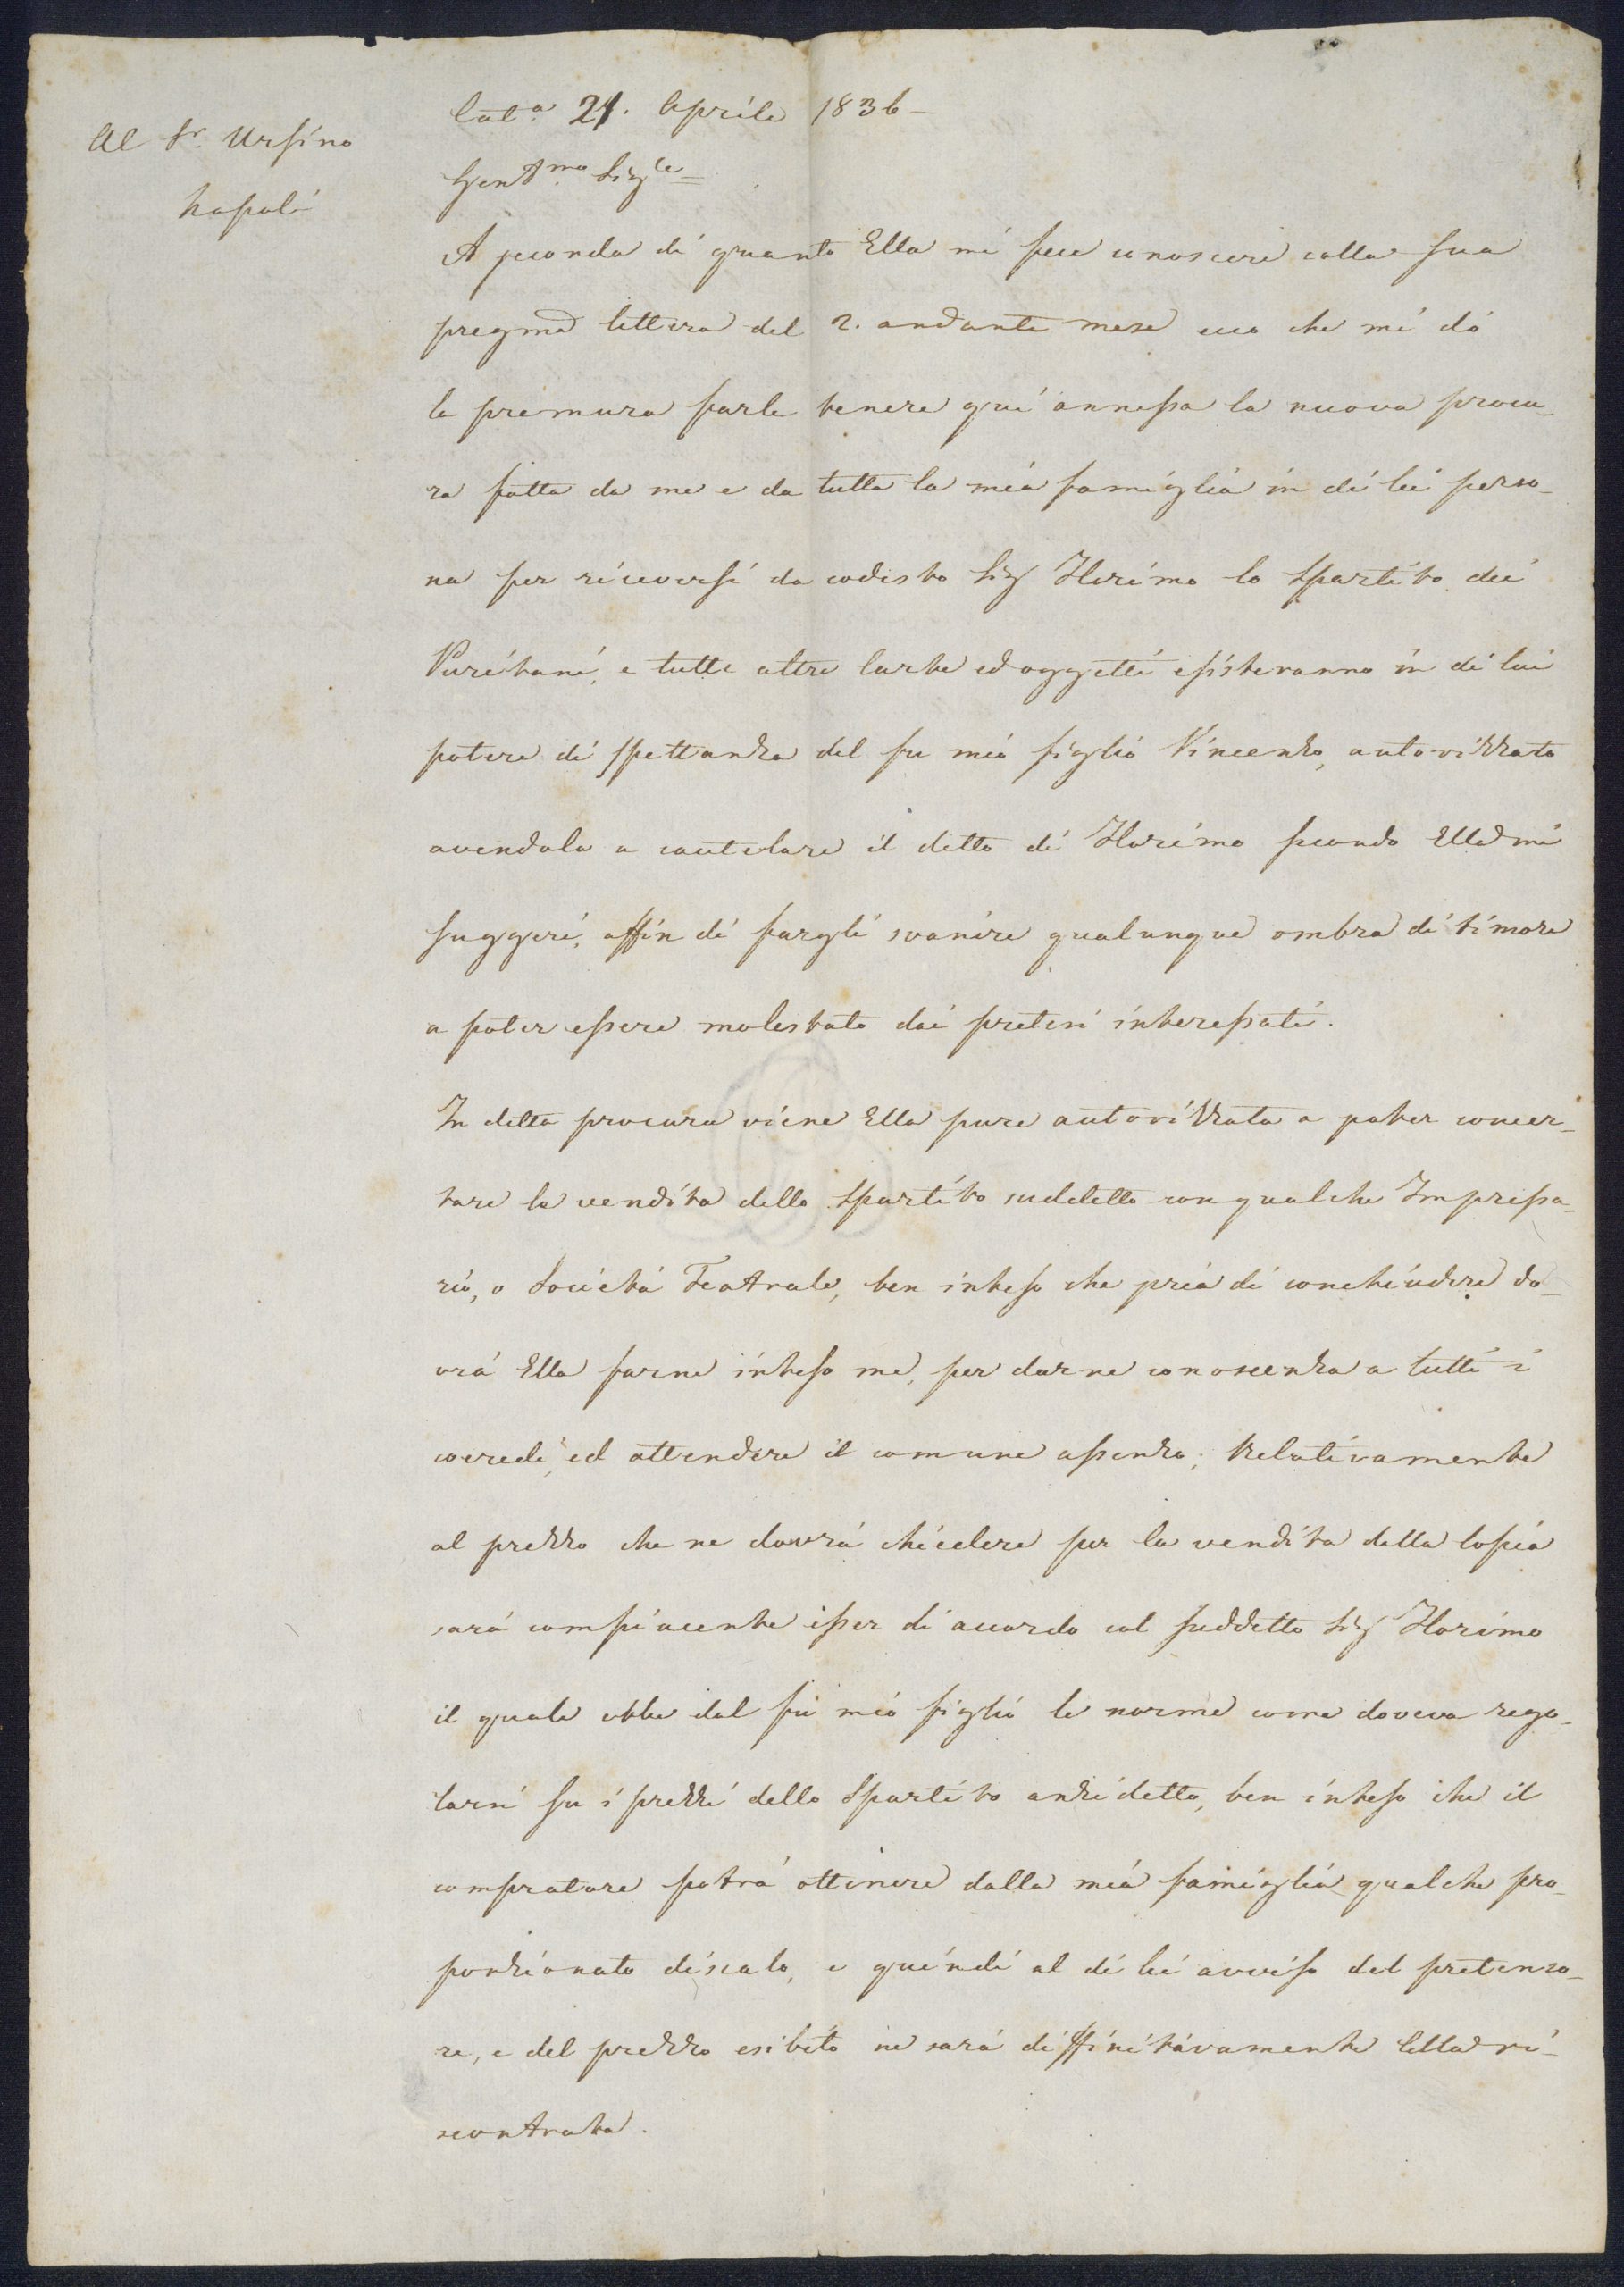 Al Sr. Ursino
Napoli
Cat.a 21. Aprile 1836-
Gentmo Sigre=
A seconda di quanto Ella mi fece conoscere colla sua
pregma lettera del 2. andante mese ecco che mi dò
la premura farle tenere quì annessa la nuova procu-
ra fatta da me e da tutta la mia famiglia in di lei perso-
na per riceversi da codesto Sig Florimo lo Spartito dei
Puritani, e tutte altre Carte ed oggetti esisteranno in di lui
potere di spettanza del fu mio figlio Vincenzo, autorizzato
avendola a cautelare il detto di Florimo secondo Ella mi
suggerì, affin di fargli svanire qualunque ombra di timore
a poter essere molestato dai pretesi interessati.
In detta procura viene Ella pure autorizzata a poter concer-
tare la vendita dello Spartito suddetto con qualche Impresa-
rio, o Società Teatrale, ben inteso che pria di conchiudere do-
vrà Ella farne inteso me, per darne conoscenza a tutti i
coeredi, ed attendere il comune assenzo; Relativamente
al prezzo che ne dovrà chiedere per la vendita della Copia
sarà compiacente esser di accordo col suddetto Sig Florimo
il quale ebbe dal fu mio figlio le norme come doveva rego-
larsi su i prezzi dello Spartito anzidetto, ben inteso che il
compratore potrà ottenere dalla mia famiglia qualche pro-
ponzionato discalo, e quindi al di lei avviso del pretenso-
re, e del prezzo esibito ne sarà diffinitivamente Ella ri-
scontrata.